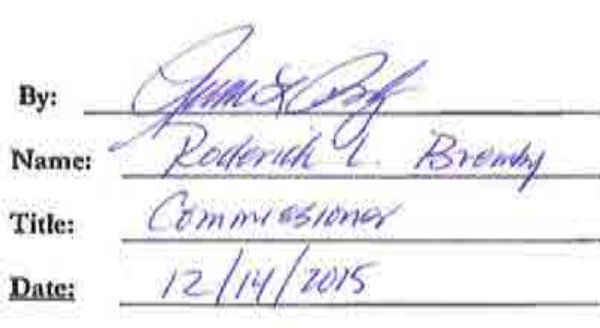 By:
Name: Roderick L. Bremby
Title: Commissioner
Date: 12/14/2015